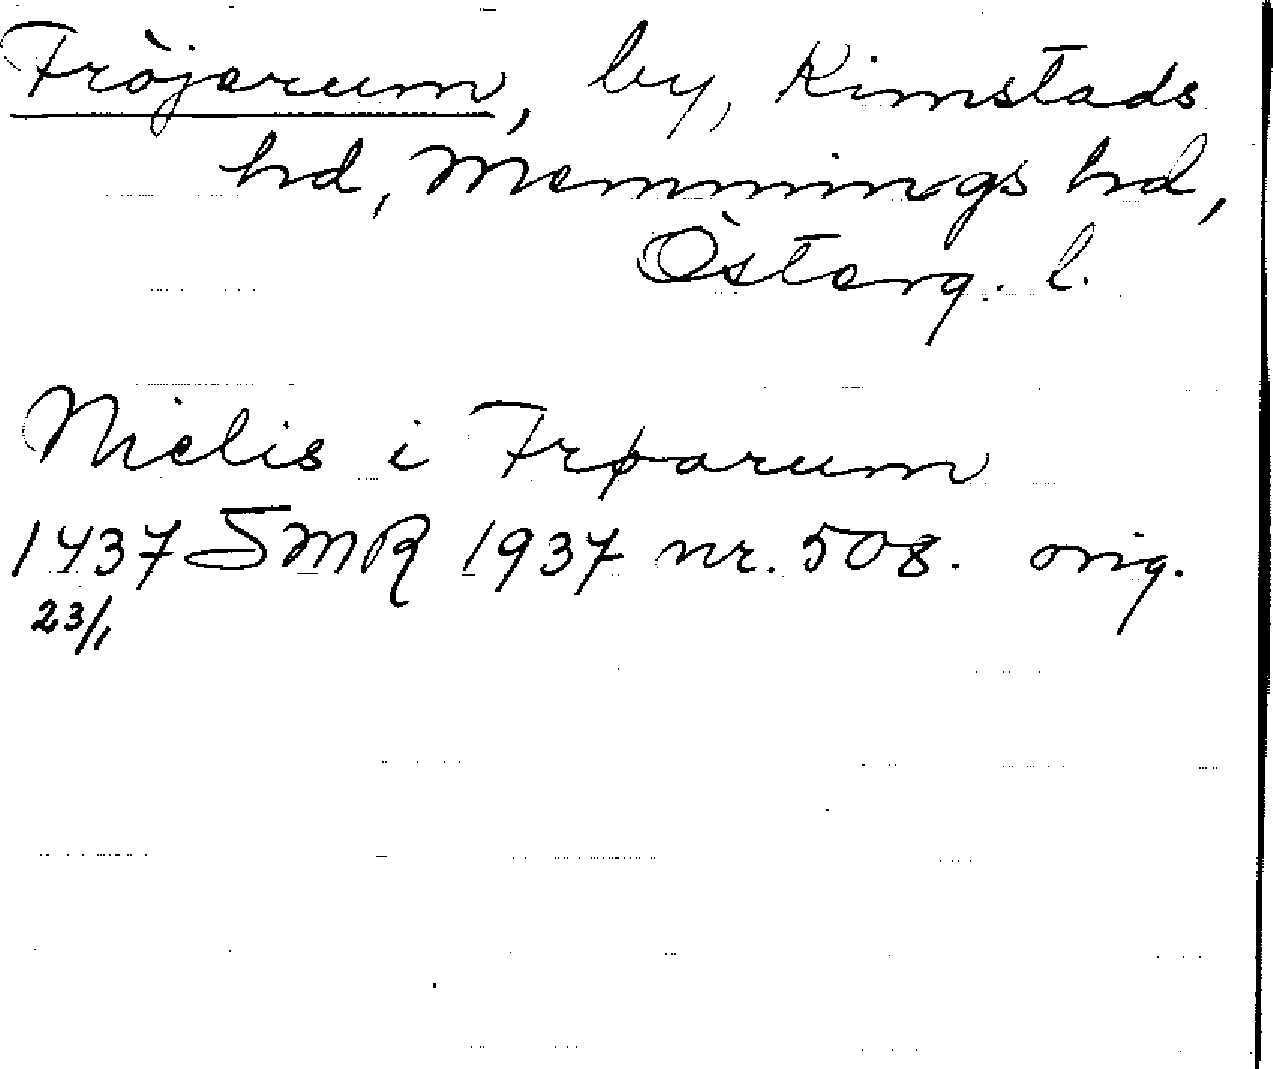 Fröjerum, by, Kimstads
hd, Memmings hd,
Österg. l.
Nielis i Frøarum
1437 SMR 1937 nr. 508. orig.
23/1